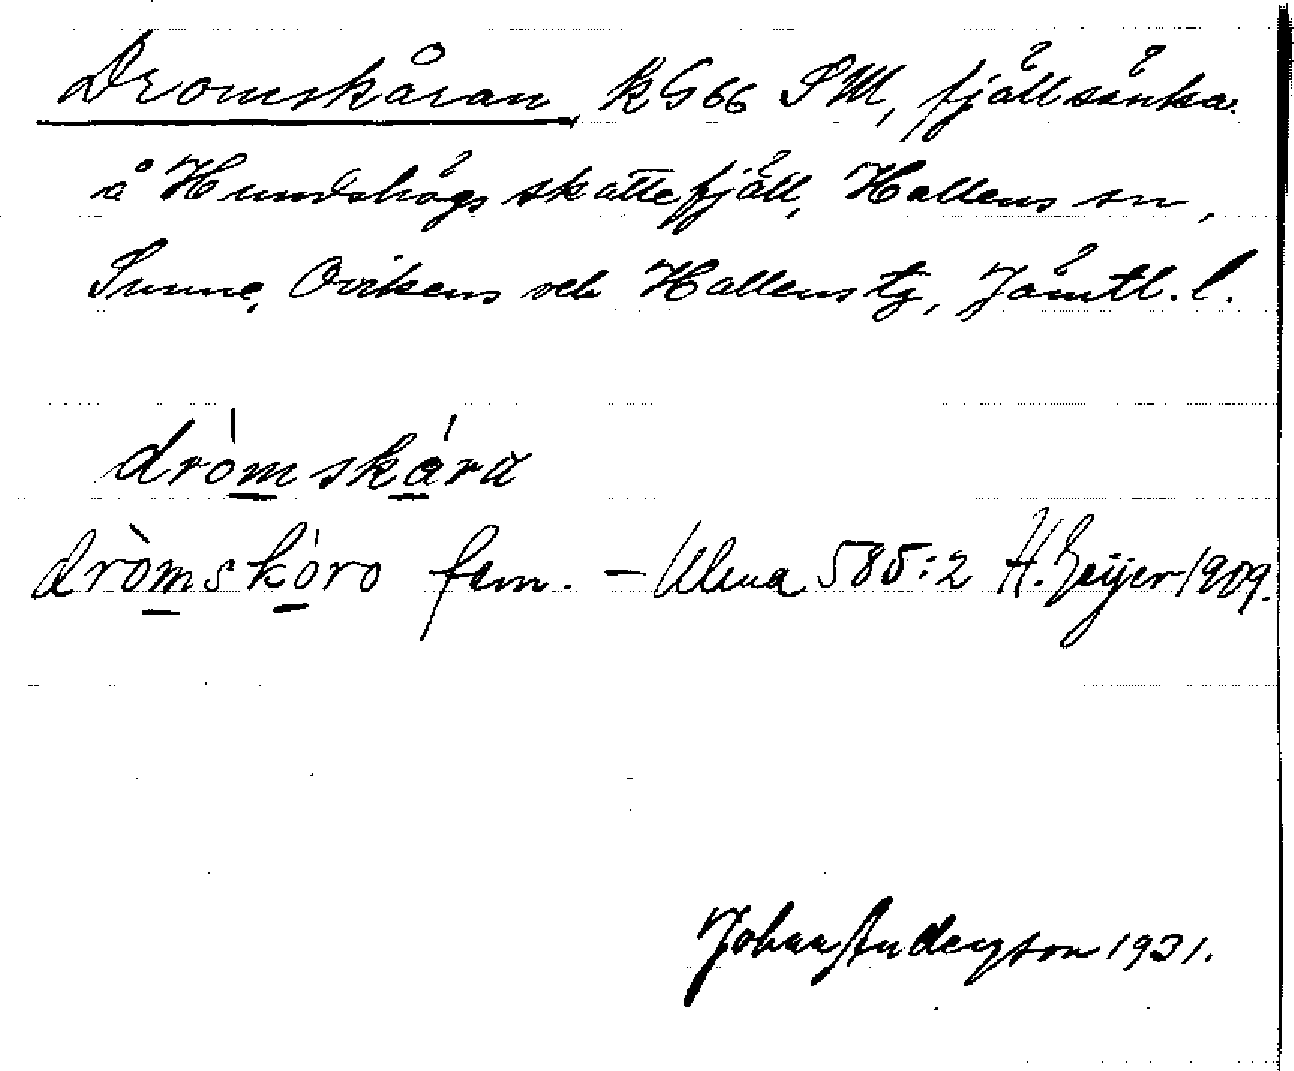 Dromskåran kG66 SM, fjällsänka
å Hundshögs skattefjäll, Hallens sn,
Sunne, Ovikens och Hallens tg, Jämtl. l.
dròmskåra
dròmskoro fem. – Ulma 585:2 H. Geijer 1909.
Johan Anderson 1931.